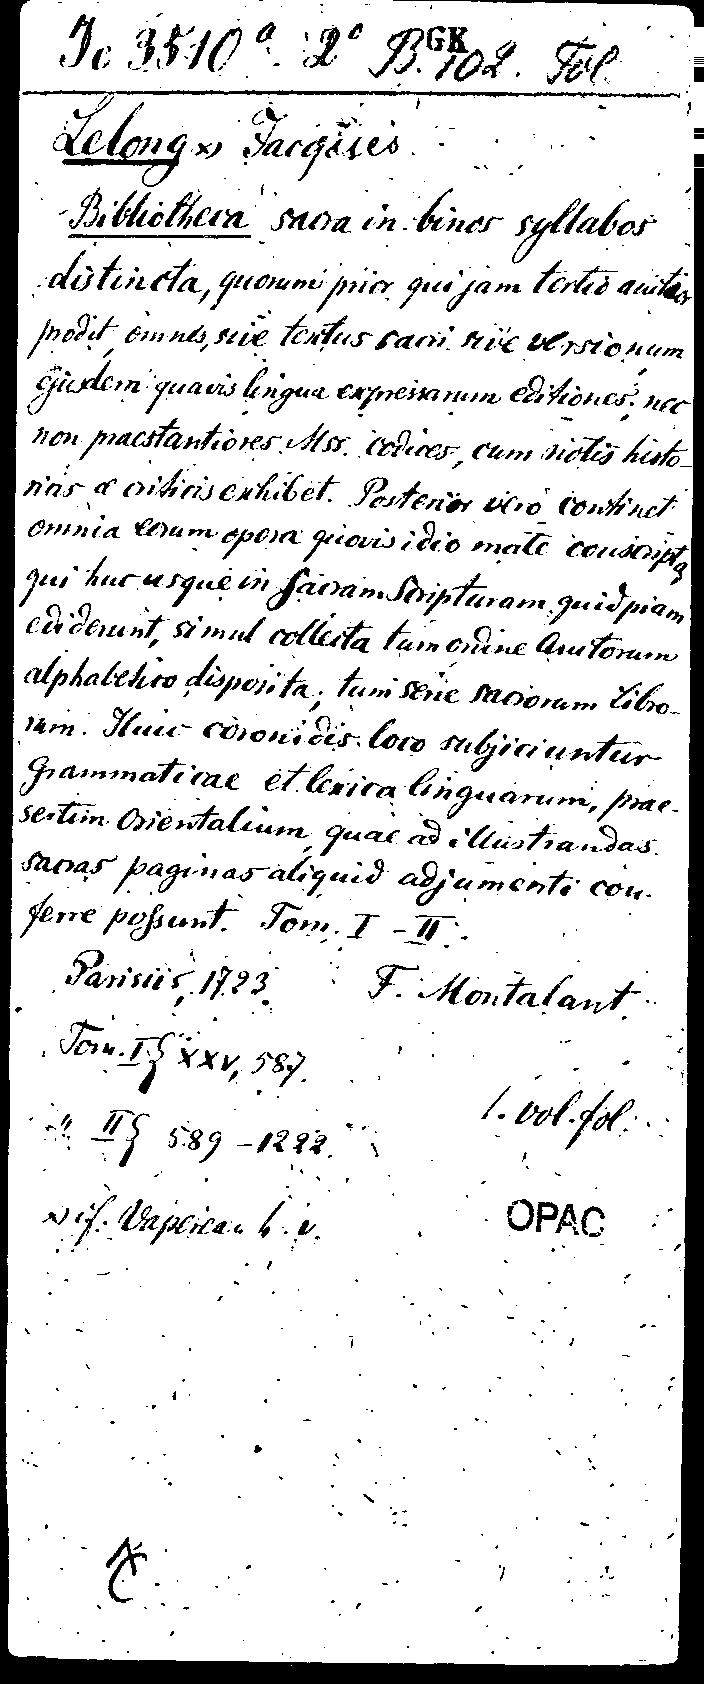 Ic 3510a. 2° B. 102. Fol.
GK
Lelong x) Jacques
Bibliotheca sacra in binos syllabos
distincta, quorum prior qui jam tertio auctior
prodit, omnes, sive textus sacri sive versionum
ejusdem quavis lingua expressarum editiones; nec
non praestantiores Mss. codices, cum notis histo-
ricis & criticis exhibet. Posterior vero continet
omnia eorum opera quovis idiomate conscripta,
qui huc usque in Sacram Scripturam quidpiam
ediderunt, simul collecta tum ordine Auctorum
alphabetico disposita; tum serie sacrorum libro-
rum. Huic coronidis loco subjiciuntur
Grammaticae et lexica linguarum, prae-
sertim Orientalium, quae ad illustrandas
sacras paginas aliquid adjumenti con-
ferre possunt. Tom. I - II.
Parisiis, 1723. F. Montalant.
Tom. I } XXV, 587.
1. vol. fol.
" II } 589 - 1222.
x) cf. Vapereau h. v.
OPAC